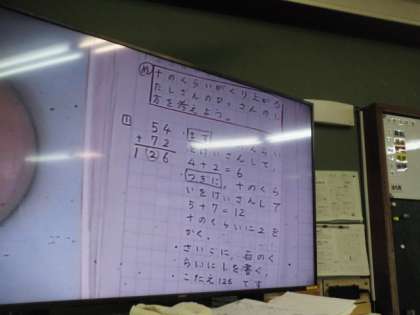 め
十のくらいがくり上がる
たしざんのひっさんのし
方を考えよう。
1
54
+72
126
・まず、
けいさんして、
4+2=6
・つぎに、十のくら
いをけいさんして
5+7=12
十のくらいに2を
かく。
・さいごに、百のく
らいに1を書く。
・こたえ126です